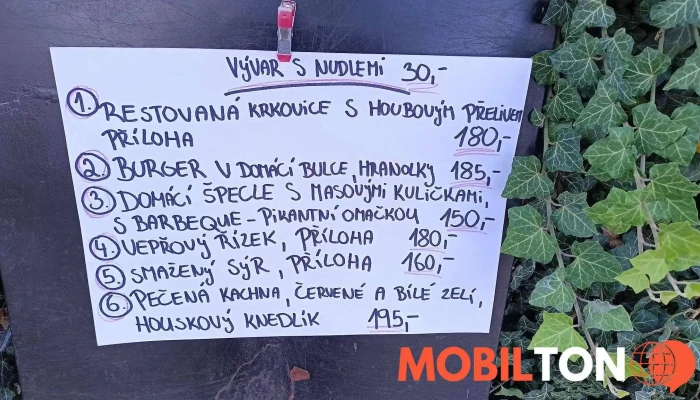 VÝVAR S NUDLEMI 30,-
1. RESTOVANÁ KRKOVICE S HOUBOVÝM PŘELIVEM
PŘÍLOHA 180,-
2. BURGER V DOMÁCÍ BULCE, HRANOLKY 185,-
3. DOMÁCÍ ŠPECLE S MASOVÝMI KULIČKAMI,
S BARBEQUE - PIKANTNÍ OMAČKOU 150,-
4. VEPŘOVÝ ŘÍZEK, PŘÍLOHA 180,-
5. SMAŽENÝ SÝR, PŘÍLOHA 160,-
6. PEČENÁ KACHNA, ČERVENÉ A BÍLÉ ZELÍ,
HOUSKOVÝ KNEDLÍK 195,-
MOBILTON